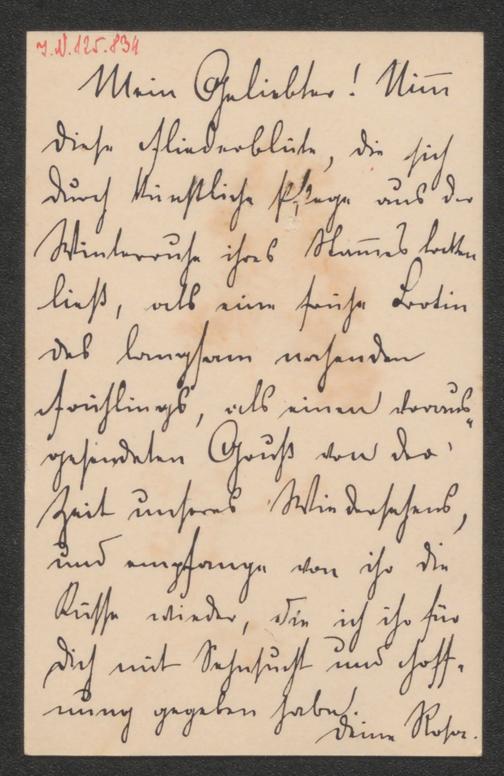 J.N. 125.834
Mein Geliebter! Nim̅
diese Fliederblüte, die sich
durch künstliche Pflege aus der
Winterruhe ihres Stam̅es locken
ließ, als eine frühe Botin
des langsam nahenden
Frühlings, als einen voraus„
gesendeten Gruß von der
Zeit unseres Wiedersehens,
und empfange von ihr die
Küsse wieder, die ich ihr für
dich mit Sehnsucht und Hoff-
nung gegeben habe!
Deine Rosa.